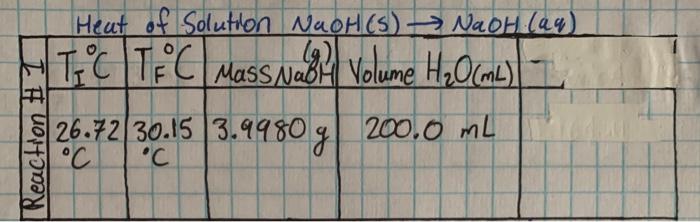 Heat of Solution NaOH(s) → NaOH(aq)
Reaction #1
T_I °C T_F °C Mass NaOH (g) Volume H₂O(mL) -
26.72 °C 30.15 °C 3.9980 g 200.0 mL